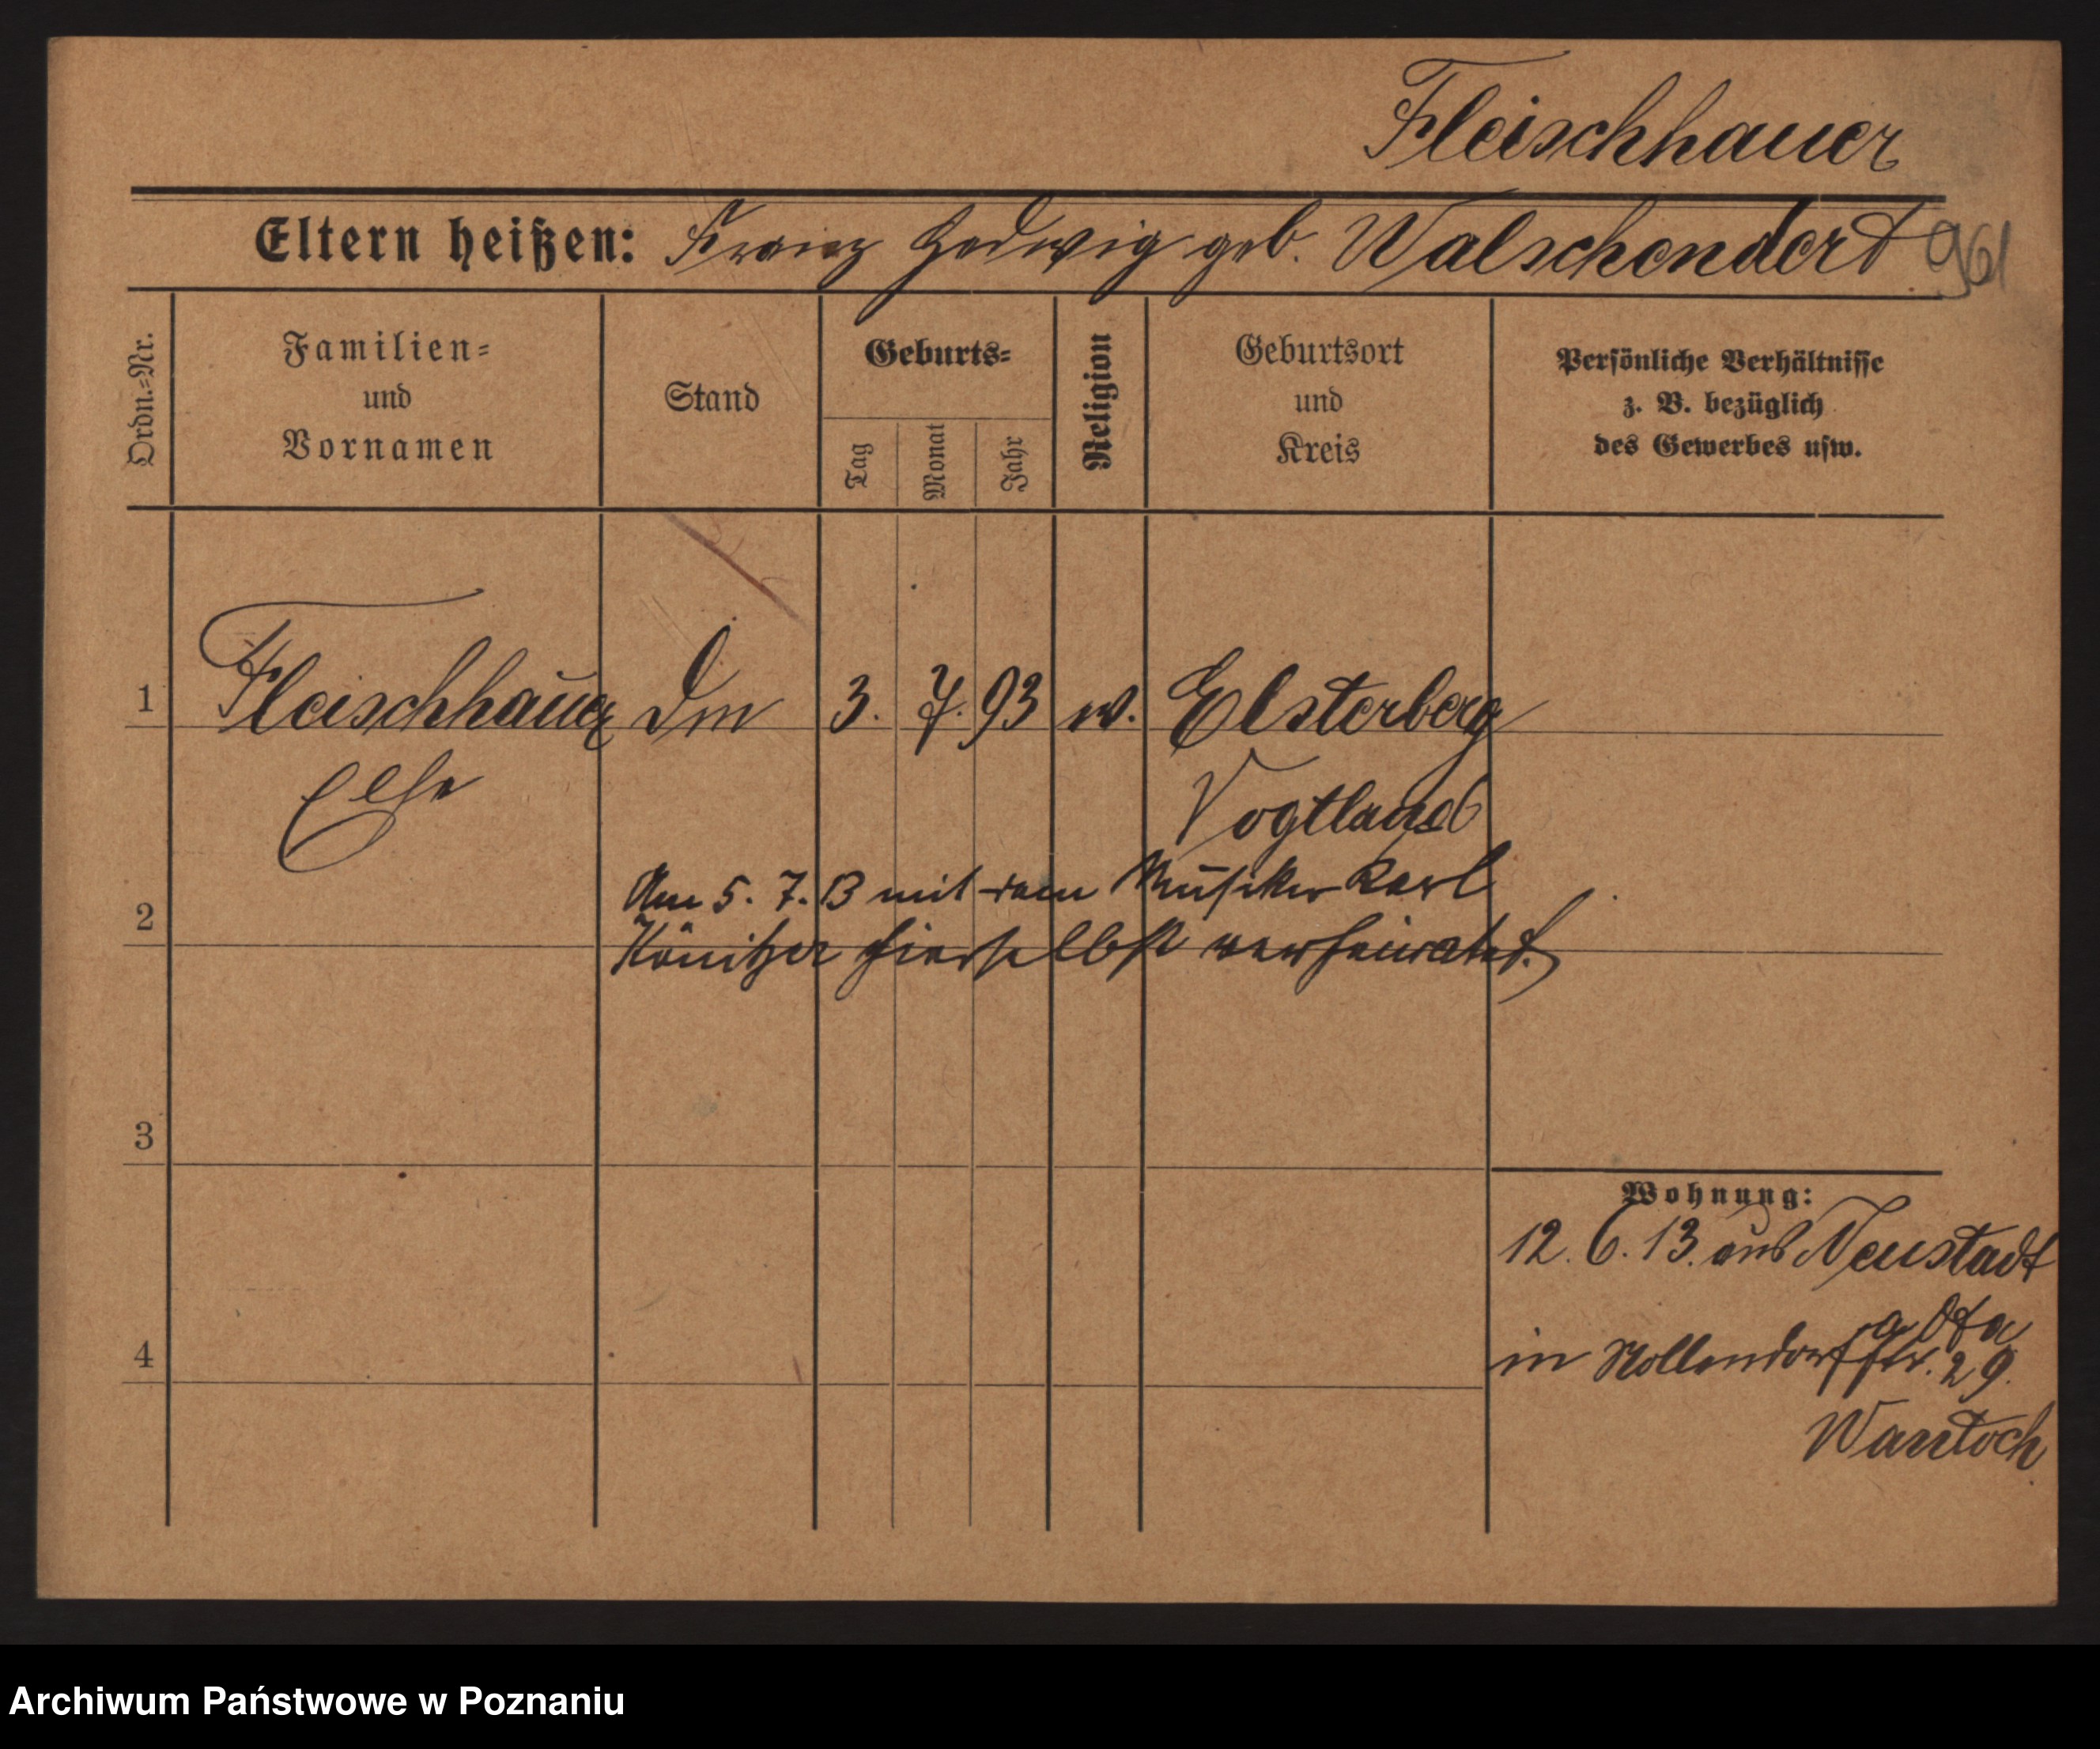 Fleischhauer
Eltern heißen: Franz Hedwig geb. Walschendert
961
Ordn.-Nr.
Familien-
und
Vornamen
Stand
Geburts-
Tag
Monat
Jahr
Religion
Geburtsort
und
Kreis
Persönliche Verhältnisse
z. B. bezüglich
des Gewerbes usw.
1 Fleischhauer 3. 7. 93 Elsterberg
Else Vogtland
Am 5. 7. 13 mit dem Musiker Karl
2 Könitzer hierselbst verheiratet.
3
Wohnung:
12. 6. 13. aus Neustadt
4 in Nollendorfstr. 29.
Wantoch
Archiwum Państwowe w Poznaniu